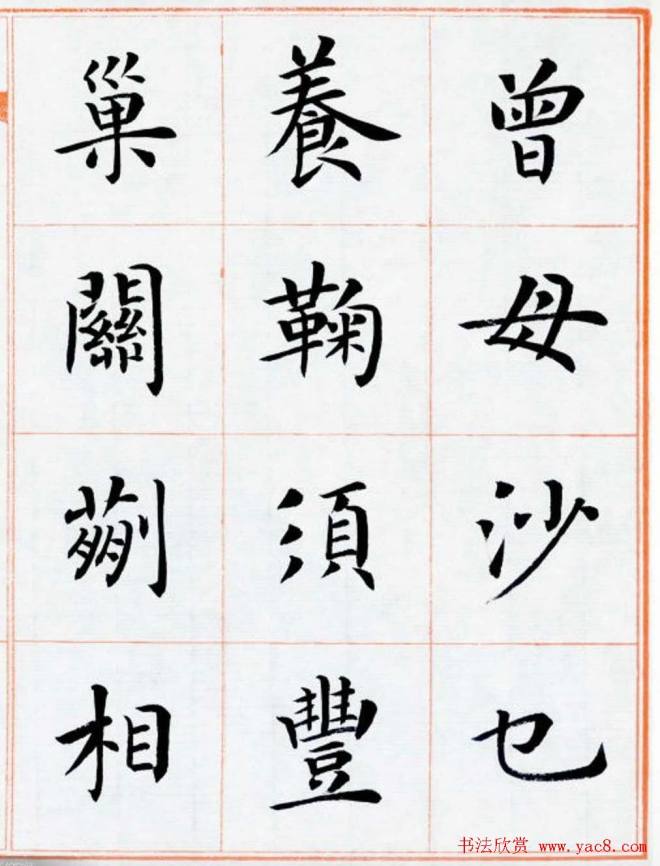 曾毋沙乜
養鞠須豐
巢關蒯相
书法欣赏 www.yac8.com